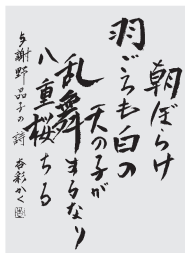 朝ぼらけ
羽ごろも白の
天の子が
乱舞するなり
八重桜ちる
与謝野晶子の詩
谷彩かく